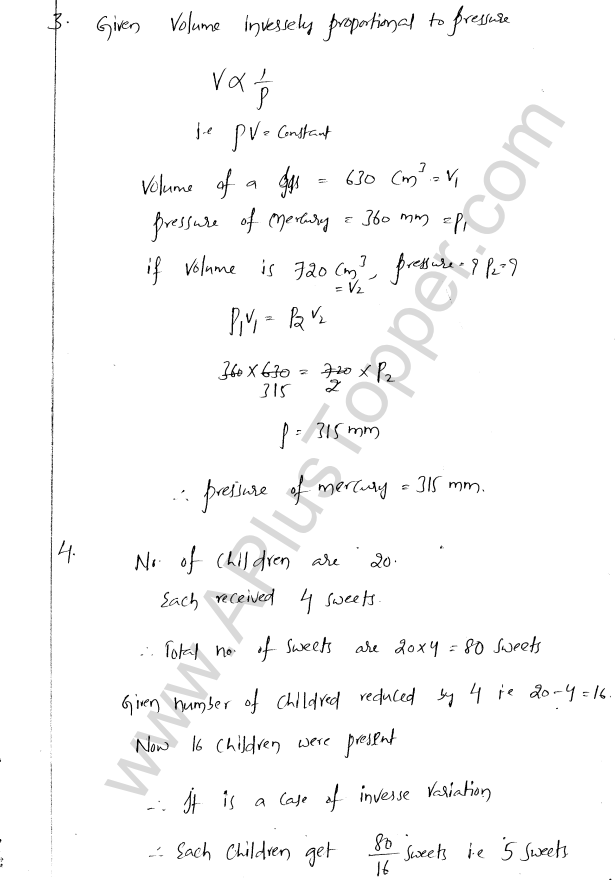 3. Given Volume inversely proportional to pressure
V ∝ 1/P
i.e PV = Constant
Volume of a gas = 630 Cm³ = V₁
pressure of mercury = 360 mm = P₁
if Volume is 720 Cm³ = V₂, pressure = ? P₂ = ?
P₁V₁ = P₂V₂
360 × 630 = 720 × P₂
315 2
P = 315 mm
∴ pressure of mercury = 315 mm.
4. No. of Children are 20.
Each received 4 sweets.
∴ Total no. of sweets are 20×4 = 80 sweets
Given number of childred reduced by 4 i e 20-4=16.
Now 16 children were present
∴ It is a case of inverse variation
∴ Each Children get 80/16 sweets i.e 5 sweets
www.APlusTopper.com